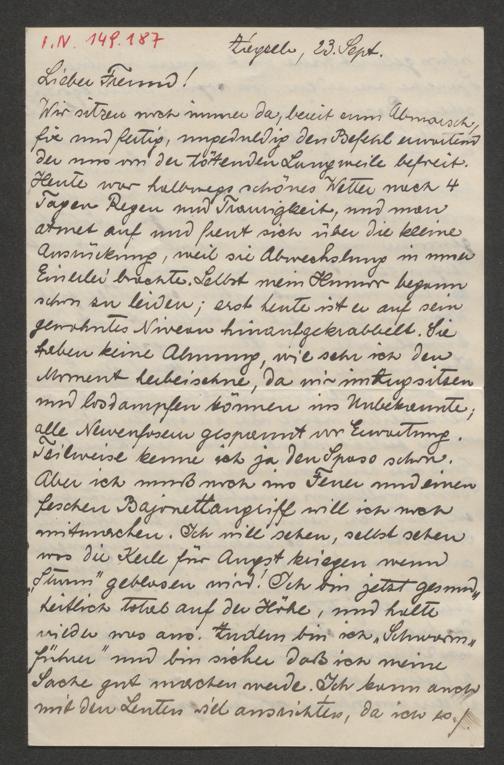 I.N. 149.187
23. Sept.
Lieber Freund!
Wir sitzen noch immer da, bereit zum Abmarsch,
fix und fertig, ungeduldig den Befehl erwartend
der uns von der tötenden Langweile befreit.
Heute war halbwegs schönes Wetter nach 4
Tagen Regen und Traurigkeit, und man
atmet auf und freut sich über die kleine
Ausrückung, weil sie Abwechslung in unser
Einerlei brachte. Selbst mein Humor begann
schon zu leiden; erst heute ist er auf sein
gewohntes Niveau hinaufgekrabbelt. Sie
haben keine Ahnung, wie sehr ich den
Moment herbeisehne, da wir im Zug sitzen
und losdampfen können ins Unbekannte;
alle Nervenfasern gespannt vor Erwartung.
Teilweise kenne ich ja den Spass schon.
Aber ich muß noch ins Feuer und einen
feschen Bajonettangriff will ich noch
mitmachen. Ich will sehen, selbst sehen
was die Kerle für Angst kriegen wenn
„Sturm" geblasen wird! Ich bin jetzt gesund„
heitlich total auf der Höhe, und halte
wieder was aus. Zudem bin ich „Schwarm„
führer" und bin sicher daß ich meine
Sache gut machen werde. Ich kann auch
mit den Leuten viel ausrichten, da ich es ./.